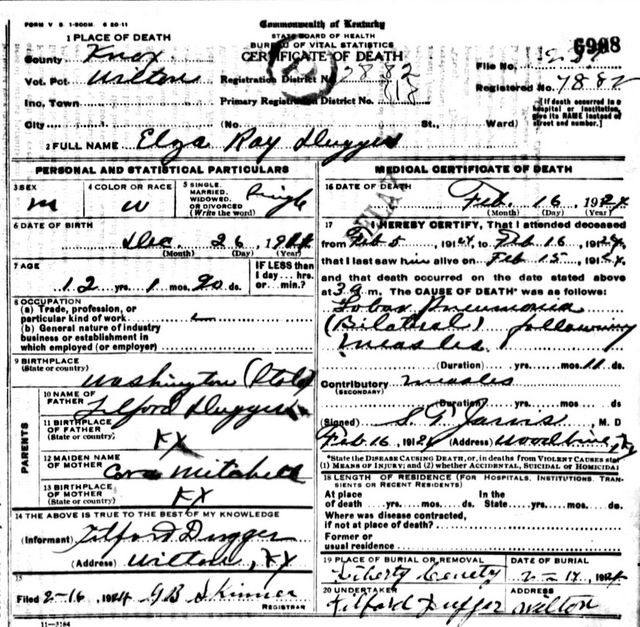 FORM V. S. 1-500M. 6 20-11
Commonwealth of Kentucky
STATE BOARD OF HEALTH
BUREAU OF VITAL STATISTICS
CERTIFICATE OF DEATH
6908
1 PLACE OF DEATH
County Knox
Vot. Pct. Wilton
Inc, Town
City (No. St., Ward)
Registration District No. 2882
Primary Registration District No.
File No.
Registered No. 7882
[If death occurred in a hospital or institution, give its NAME instead of street and number.]
2 FULL NAME Elza Ray Dugger
PERSONAL AND STATISTICAL PARTICULARS
3 SEX m
4 COLOR OR RACE w
5 SINGLE, MARRIED, WIDOWED, OR DIVORCED (Write the word) Single
6 DATE OF BIRTH
Dec 26, 19
(Month) (Day) (Year)
7 AGE
12 yrs. 1 mos. 20 ds.
IF LESS than 1 day....hrs. or min.?
8 OCCUPATION
(a) Trade, profession, or particular kind of work
(b) General nature of industry business or establishment in which employed (or employer)
9 BIRTHPLACE
(State or country)
Washington (State)
PARENTS
10 NAME OF FATHER Tilford Dugger
11 BIRTHPLACE OF FATHER (State or country) KY
12 MAIDEN NAME OF MOTHER Cora Mitchell
13 BIRTHPLACE OF MOTHER (State or country) KY
14 THE ABOVE IS TRUE TO THE BEST OF MY KNOWLEDGE
(Informant) Tilford Dugger
(Address) Wilton, KY
15
Filed 2-16, 1924 G B Skinner
REGISTRAR
11-3184
MEDICAL CERTIFICATE OF DEATH
16 DATE OF DEATH
Feb. 16, 1924
(Month) (Day) (Year)
17 I HEREBY CERTIFY, That I attended deceased
from Feb 5, 1924, to Feb 16, 1924,
that I last saw him alive on Feb 15, 1924,
and that death occurred on the date stated above
at 3 a m. The CAUSE OF DEATH* was as follows:
Lobar Pneumonia
(Bilateral) following
measles
(Duration) yrs. mos. 11 ds.
Contributory measles
(SECONDARY)
(Duration) yrs. mos. ds.
(Signed) S. G. Jarvis, M. D
Feb 16, 1924 (Address) Woodbine, Ky
*State the DISEASE CAUSING DEATH, or, in deaths from VIOLENT CAUSES state (1) MEANS OF INJURY; and (2) whether ACCIDENTAL, SUICIDAL or HOMICIDAL
18 LENGTH OF RESIDENCE (FOR HOSPITALS, INSTITUTIONS, TRANSIENTS OR RECENT RESIDENTS)
At place of death yrs. mos. ds. In the State yrs. mos. ds.
Where was disease contracted, if not at place of death?
Former or usual residence
19 PLACE OF BURIAL OR REMOVAL
DATE OF BURIAL
Liberty 2-17, 1924
20 UNDERTAKER
ADDRESS
Tilford Dugger Wilton